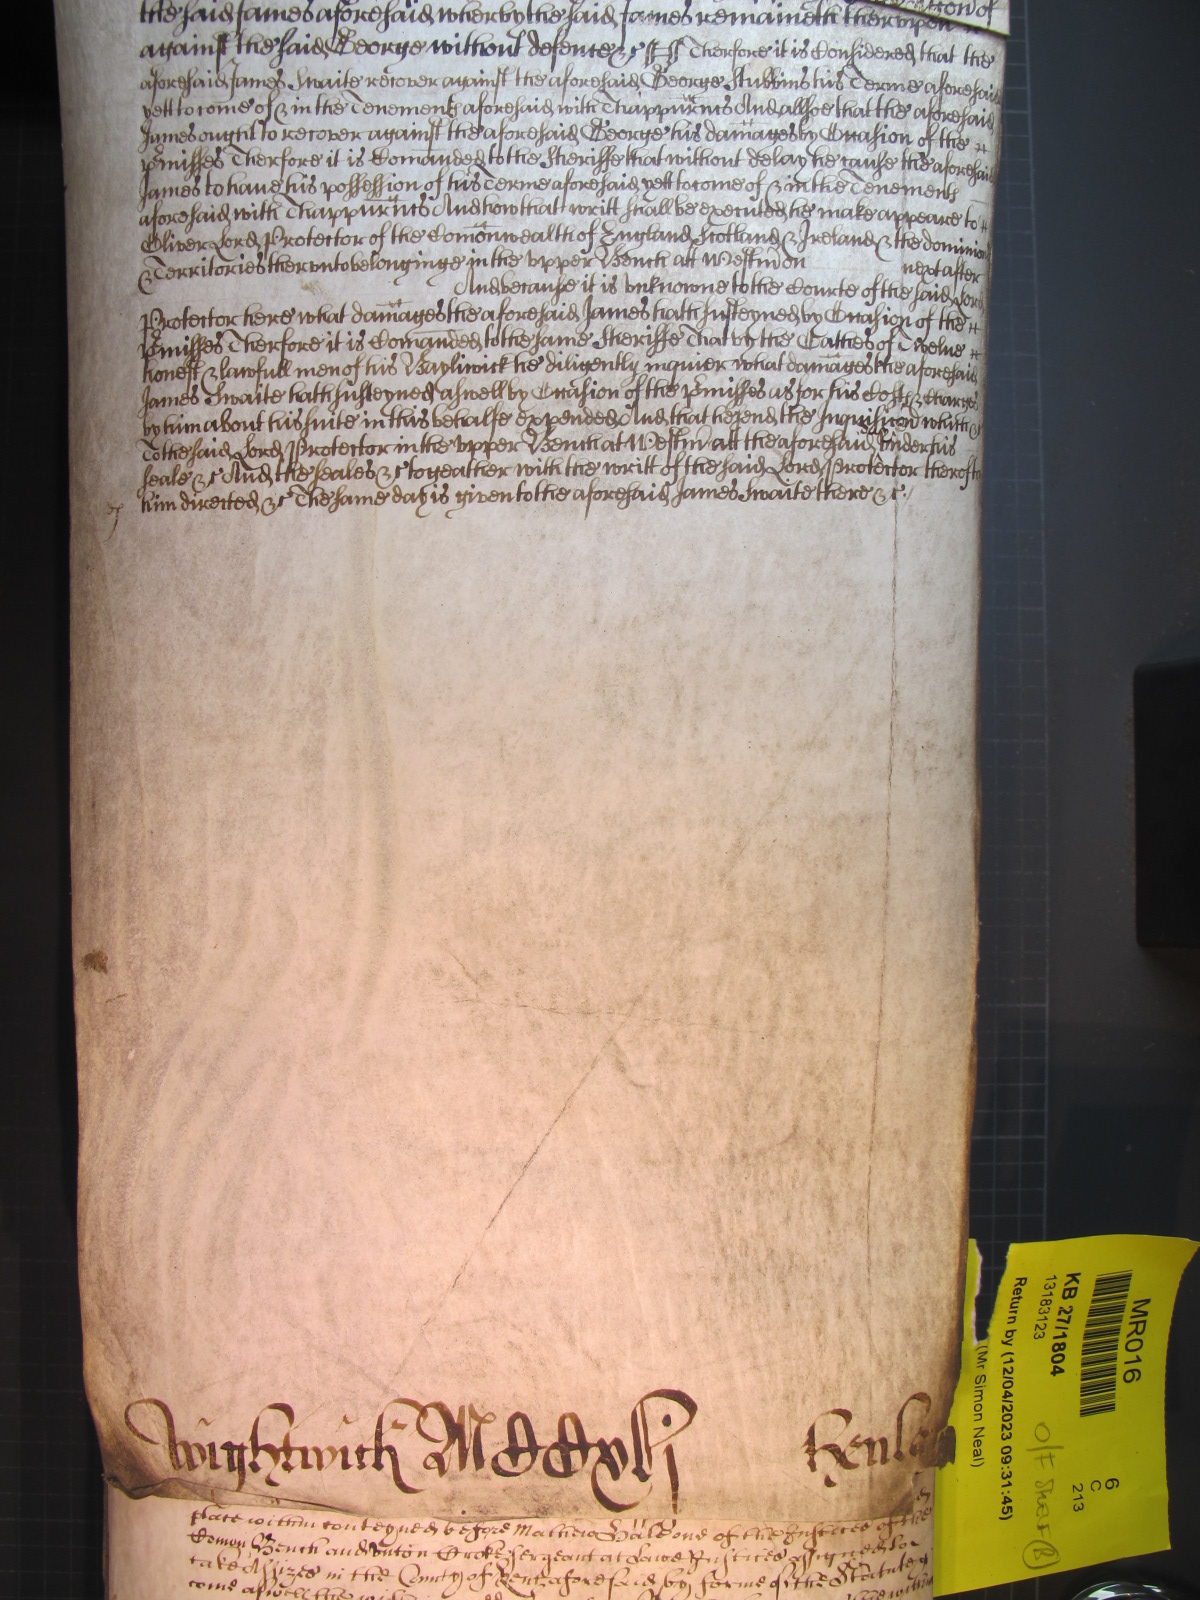 the said James aforesaid wherby the said James remaineth thervpon
against the said George without defence &c Therfore it is Considered that the
aforesaid James Swaite recover against the aforesaid George Stubbins his Terme aforesaid
yett to come of & in the Tenements aforesaid with Thappurtncs And allsoe that the aforesaid
James ought to recover against the aforesaid George his damages by Occasion of the
p'misses Therfore it is Comanded to the Sheriffe that without delay he cause the aforesaid
James to haue his possession of his Terme aforesaid yett to come of & in the Tenements
aforesaid with Thappurtncs And how that writt shall be executed he make appeare to
Oliver Lord Protector of the Comonwealth of England Scotland & Ireland & the dominions
& Territories thervnto belonginge in the vpper Bench att Westm on next after
And because it is vnknowne to the Courte of the said Lord
Protector here what damages the aforesaid James hath susteyned by Occasion of the
p'misses Therfore it is Comanded to the same Sheriffe That by the Oathes of Twelue
honest & lawfull men of his Bayliwick he diligently inquier what damages the aforesaid
James Swaite hath susteyned aswell by Occasion of the p'misses as for his Costs & Charges
by him about his suite in this behalfe expended And that he send the Inquisicon which &c
To the said Lord Protector in the vpper Bench at Westm att the aforesaid vnder his
seale &c And the seales &c togeather with the writt of the said Lord Protector therof to
him directed &c The same day is given to the aforesaid James Swaite there &c
Wightwick MCCxlj Kenle
place within conteyned before Mathew Hale one of the Justices of the
Comon Bench and Vnton Croke sergeant at Lawe Justices assigned to
take Assizes in the County of Kent aforesaid by forme of the Statute &c
come aswell the
MR016
KB 27/1804
13183123
Return by (12/04/2023 09:31:45)
(Mr Simon Neal)
6
C
213